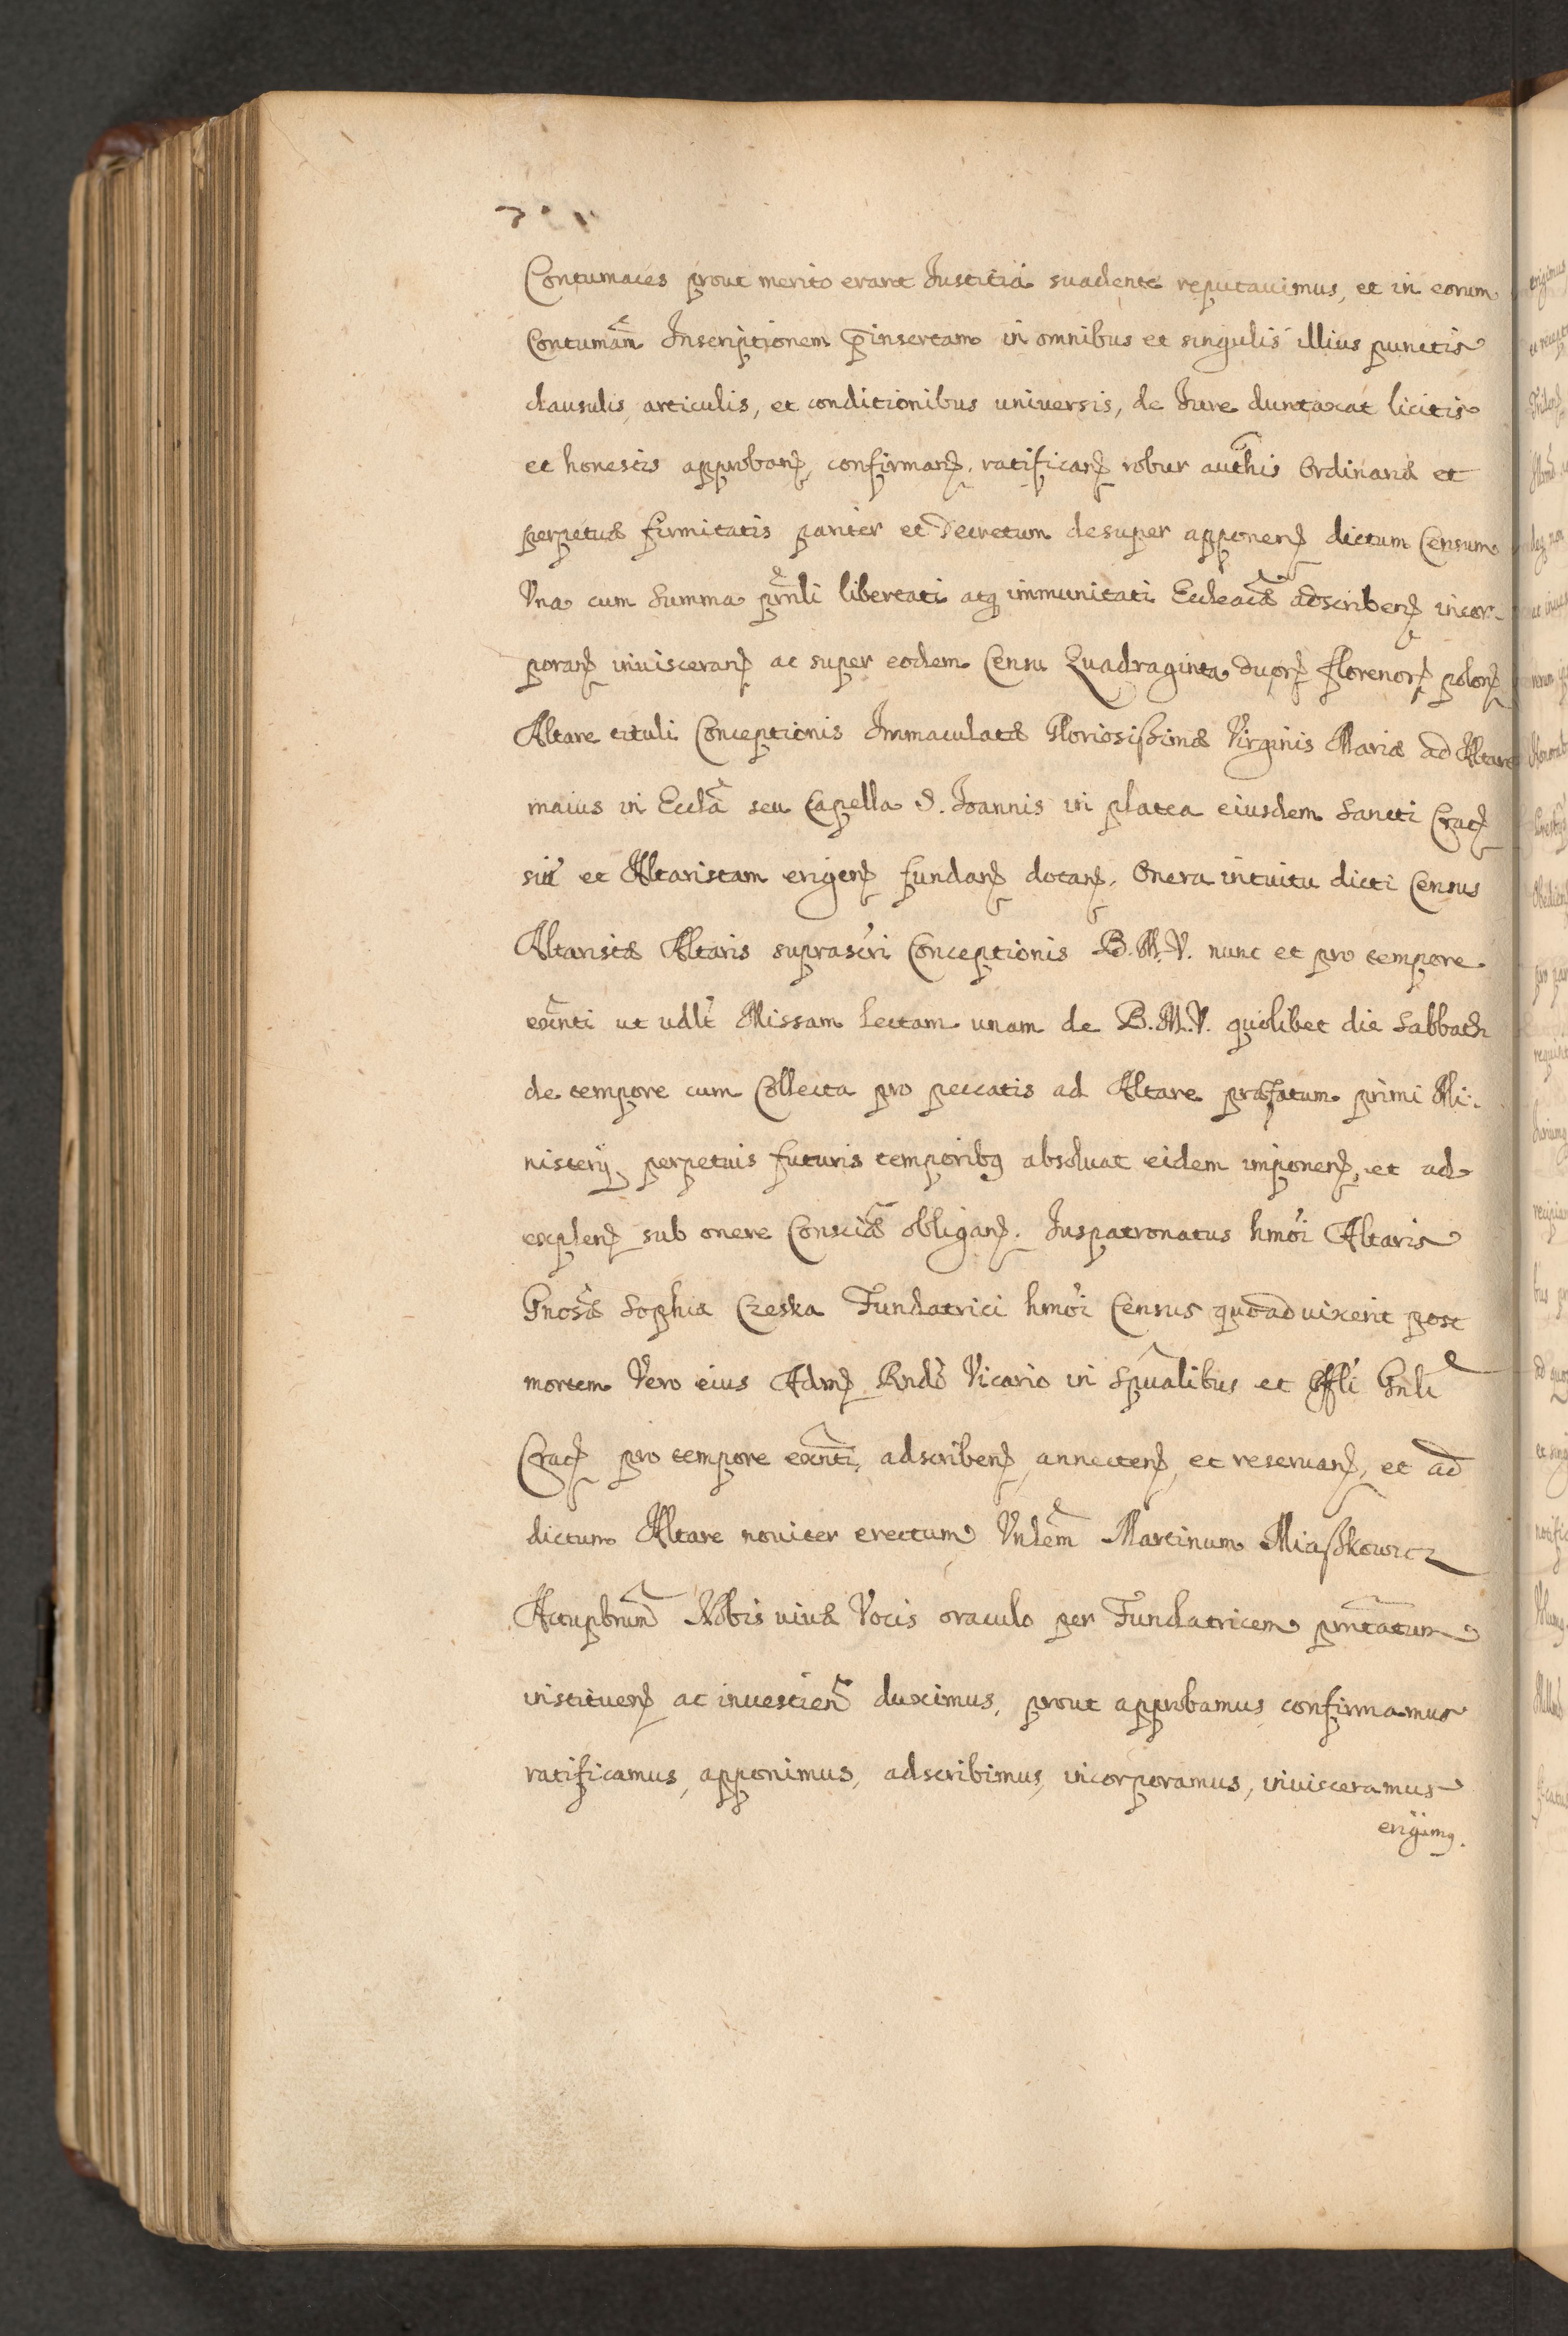 Contumaces prout merito erant Justitia suadente reputauimus, et in eorum
Contumãm Inscriptionem p̃insertam in omnibus et singulis illius punctis
clausulis, articulis, et conditionibus uniuersis, de Jure duntaxat licitis
et honestis approbanđ, confirmanđ, ratificanđ robur authĩs Ordinariæ et
perpetuæ firmitatis pariter et Decretum desuper apponenđ dictum Censum
Vna cum Summa prñli libertati atq immunitati Eccleacæ̃ adscribenđ incor-
poranđ inuisceranđ ac super eodem Censu Quadraginta duorꝝ florenorꝝ polonꝝ
Altare tituli Conceptionis Immaculatæ Gloriosissimæ Virginis Mariæ ad Altare
maius in Ecclã seu Capella S. Joannis in platea eiusdem Sancti Cracꝝ
siti et Altaristam erigenđ fundanđ dotanđ, Onera intuitu dicti Census
Altaristæ Altaris suprascri Conceptionis B.M.V. nunc et pro tempore
exñti ut vdlt Missam lectam unam de B.M.V. quolibet die Sabbathi
de tempore cum Collecta pro peccatis ad Altare præfatum primi Mi-
nisterij perpetuis futuris temporibq absoluat eidem imponenđ, et ad
explenđ sub onere Consciæ̃ obliganđ. Juspatronatus hmõi Altaris
Gnosæ̃ Sophiæ Czeska Fundatrici hmõi Census quoad vixerit post
mortem Vero eius Admꝝ Rndõ Vicario in Spũalibus et Offli Gnli
Cracꝝ pro tempore exñti, adscribenđ, annectenđ, et reseruanđ, et ad
dictum Altare nouiter erectum Vnlem̃ Martinum Miaszkowicz
Actuprbrum̃ Nobis viuæ Vocis oraculo per Fundatricem prñtatum
instituenđ ac inuestien̄d duximus, prout approbamus confirmamus
ratificamus, apponimus, adscribimus, incorporamus, inuisceramus
erigimq.